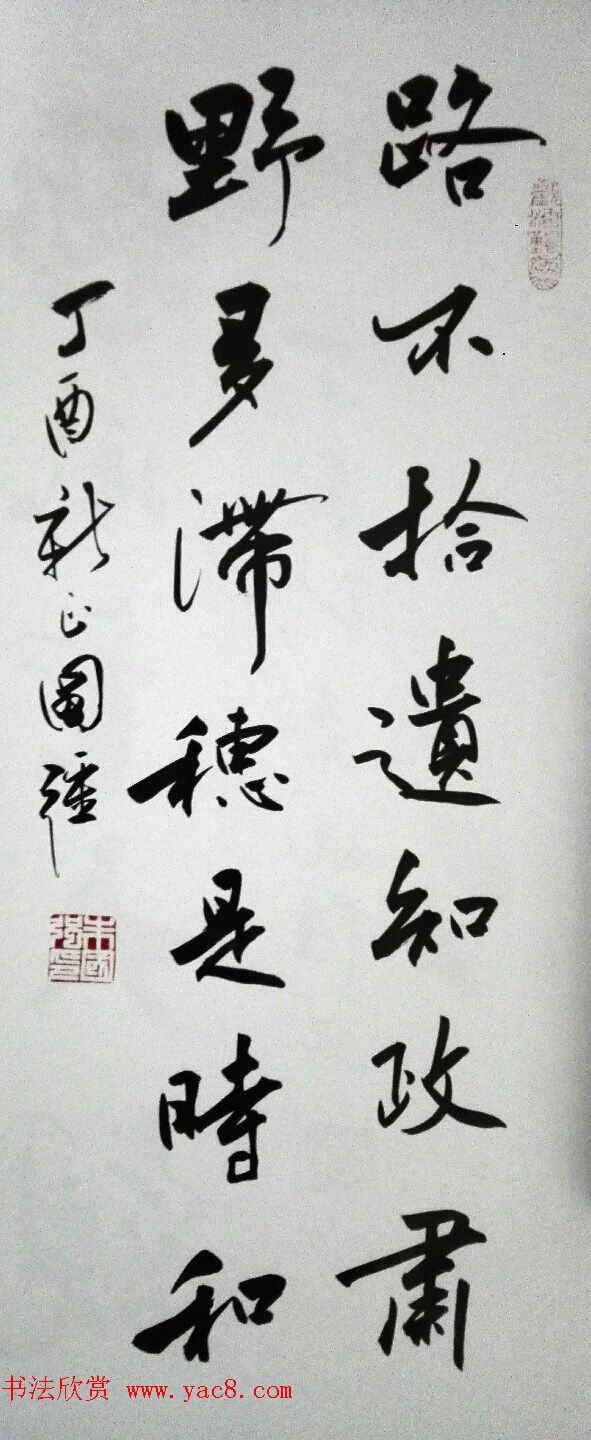 路不拾遺知政肅
野多滯穗是時和
丁酉新正國強
书法欣赏 www.yac8.com